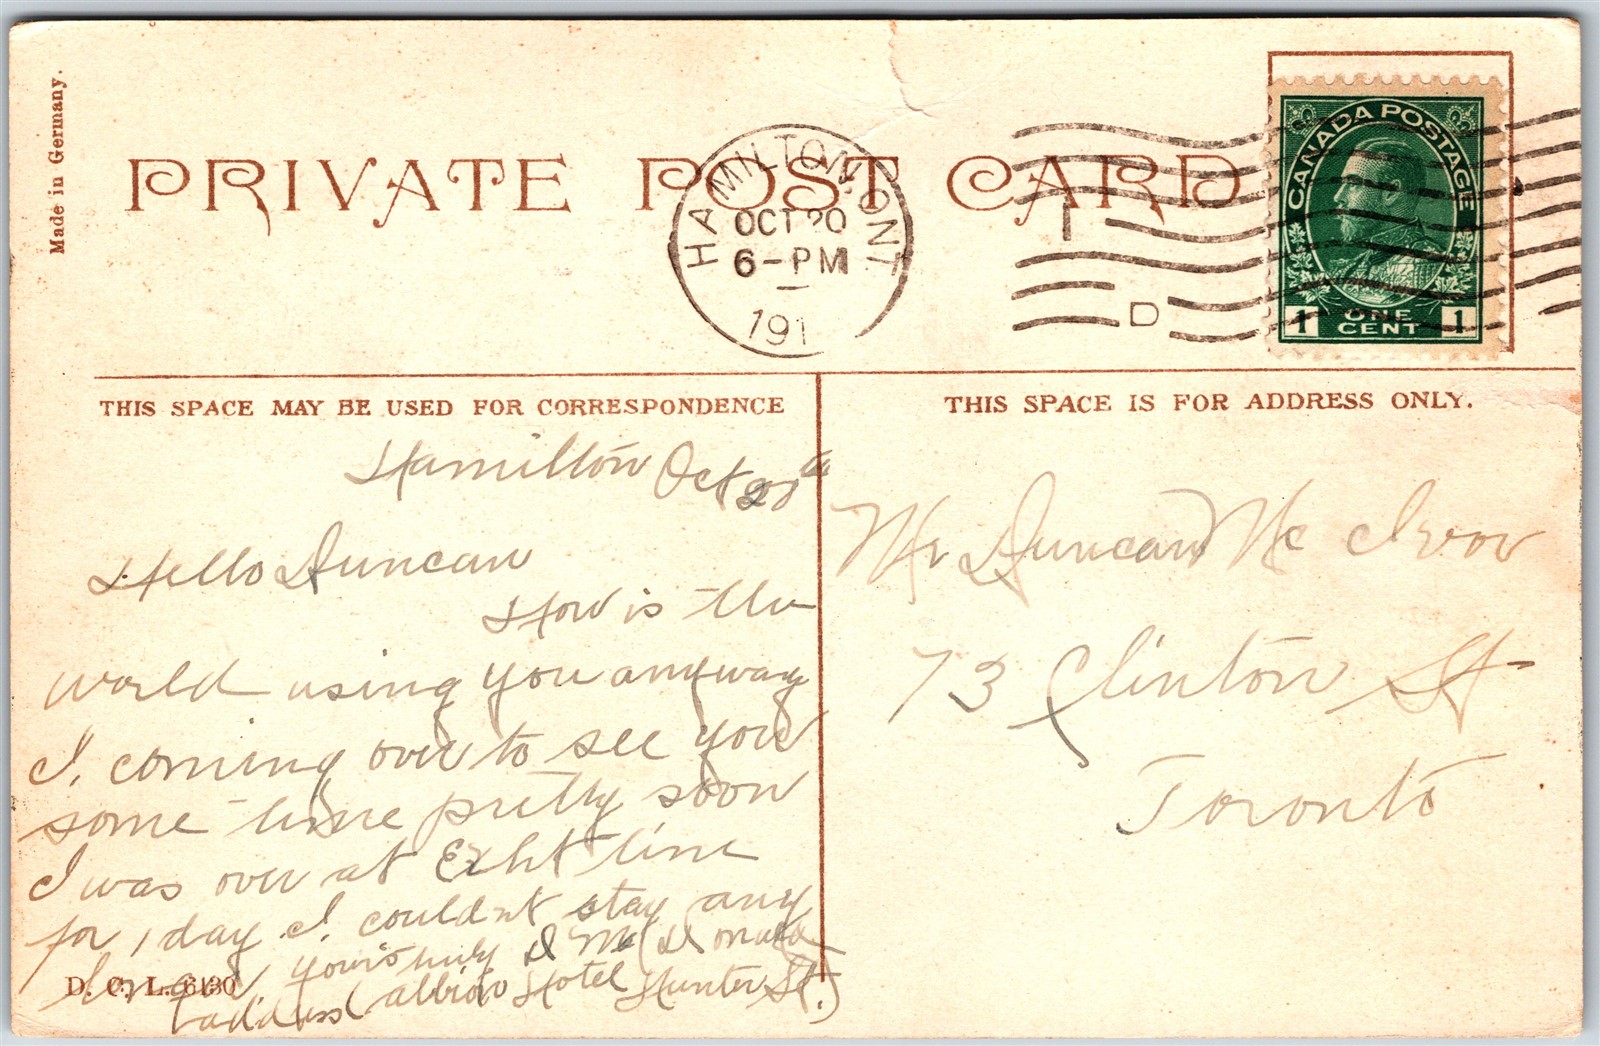 Made in Germany.
PRIVATE POST CARD
HAMILTON, ONT.
OCT 20
6-PM
191
I
D
CANADA POSTAGE
1 ONE CENT 1
THIS SPACE MAY BE USED FOR CORRESPONDENCE
THIS SPACE IS FOR ADDRESS ONLY.
Hamilton Oct 20th
Hello Duncan
How is the
world using you anyway
I. coming over to see you
some time pretty soon
I was over at Exht time
for 1 day I. couldnt stay any
yours truly D McDonald
address (Albion Hotel Hunter St.)
D. C. L. 6130
Mr Duncan Mc Ivor
73 Clinton St
Toronto